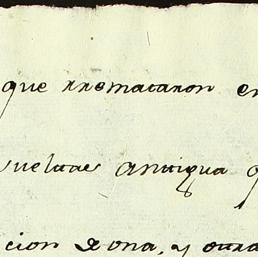 que rrematazon en
vueltas antigua q
cion Zona, y otra